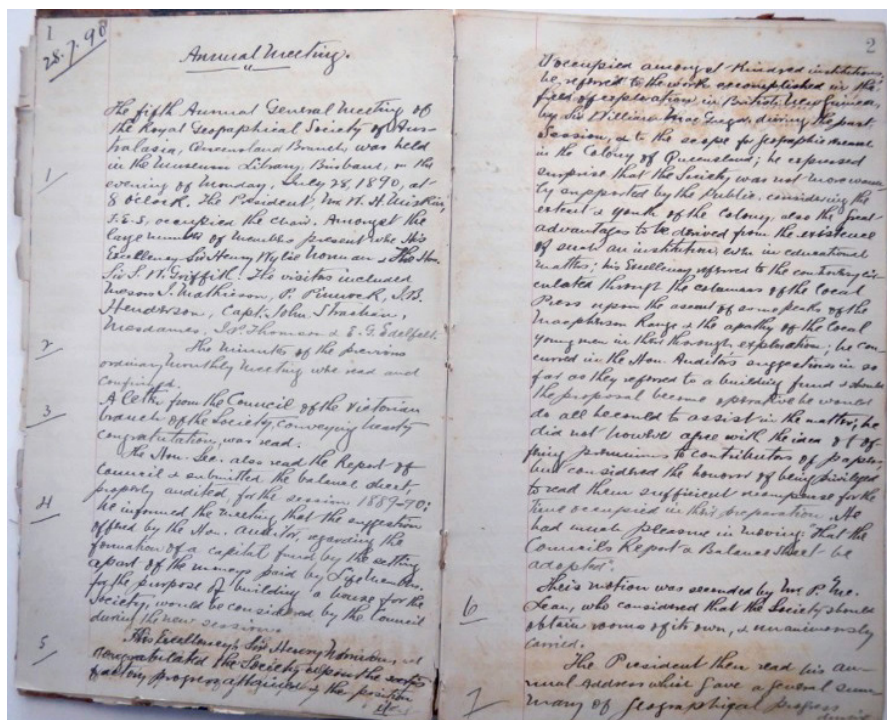 1
28.7.90
Annual Meeting.
The fifth Annual General Meeting of
the Royal Geographical Society of Aus-
tralasia, Queensland Branch, was held
1
in the Museum Library, Brisbane, on the
evening of Monday, July 28, 1890, at
8 oClock. The President, Mr W. H. Miskin,
F.E.S, occupied the chair. Amongst the
large number of members present were His
Excellency Sir Henry Wylie Norman & The Hon.
Sir S. W. Griffith. The visitors included
Messrs J. Mathieson, P. Pinnock, J.B.
Henderson, Capt. John Strachan,
Mesdames, J.P. Thomson & E. G. Edelfelt.
2
The Minutes of the previous
ordinary monthly Meeting were read and
confirmed.
3
A letter from the Council of the Victorian
branch of the Society, conveying hearty
congratulation, was read.
The Hon. Sec. also read the Report of
Council & submitted the balance sheet,
4
properly audited, for the session 1889-90;
he informed the meeting that the suggestion
offered by the Hon. Auditor, regarding the
formation of a capital fund by the setting
apart of the moneys paid by Life Members
for the purpose of building a house for the
Society, would be considered by the Council
during the new session.
5
His Excellency Sir Henry Norman
congratulated the Society upon the satis-
factory progress attained & the position
2
it occupied amongst Kindred institutions,
he referred to the work accomplished in the
field of exploration in British New Guinea,
by Sir William Mac Gregor during the past
Session, & to the scope for geographic
in the Colony of Queensland; he expressed
surprise that the Society was not more
supported by the Public, considering the
extent & youth of the Colony, also the great
advantages to be derived from the existence
of such an institution, even in educational
matters; his Excellency referred to the
through the columns of the local
Press upon the ascent of some peaks of the
Macpherson Range & the apathy of the local
young men in their thorough exploration; he con-
curred in the Hon. Auditor's suggestions in so
far as they referred to a building fund & should
the proposal become operative he would
do all he could to assist in the matter; he
did not however agree with the idea of of-
fering premiums to contributors of papers,
but considered the honour of being privileged
to read them sufficient recompense for the
time occupied in their preparation. He
had much pleasure in moving: That the
Council's Report & Balance Sheet be
adopted".
6
This motion was seconded by Mr. P. Mc.
Lean, who considered that the Society should
obtain rooms of its own, & unanimously
carried.
The President then read his an-
7
nual Address which gave a general sum-
mary of geographical progress